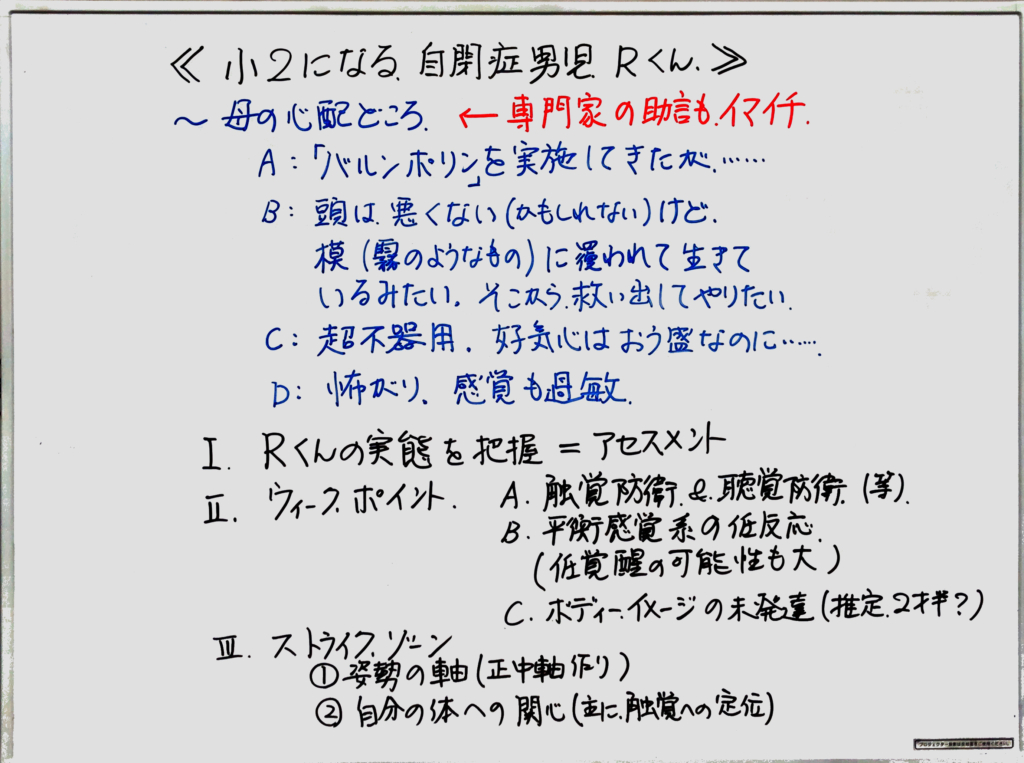 ≪小2になる 自閉症男児 Rくん≫
～母の心配どころ ←専門家の助言も イマイチ
A:「バルンポリン」を実施してきたが……
B:頭は 悪くない(かもしれない)けど
模(霧のようなもの)に覆われて生きて
いるみたい。そこから 救い出してやりたい
C:超不器用。好気心はおう盛なのに……
D:怖がり、感覚も過敏
Ⅰ.Rくんの実態を把握=アセスメント
Ⅱ.ウィークポイント. A.触覚防衛 & 聴覚防衛 (等)
B.平衡感覚系の低反応
(低覚醒の可能性も大)
C.ボディーイメージの未発達(推定 2才半?)
Ⅲ.ストライクゾーン
①姿勢の軸(正中軸作り)
②自分の体への関心(主に 触覚への定位)